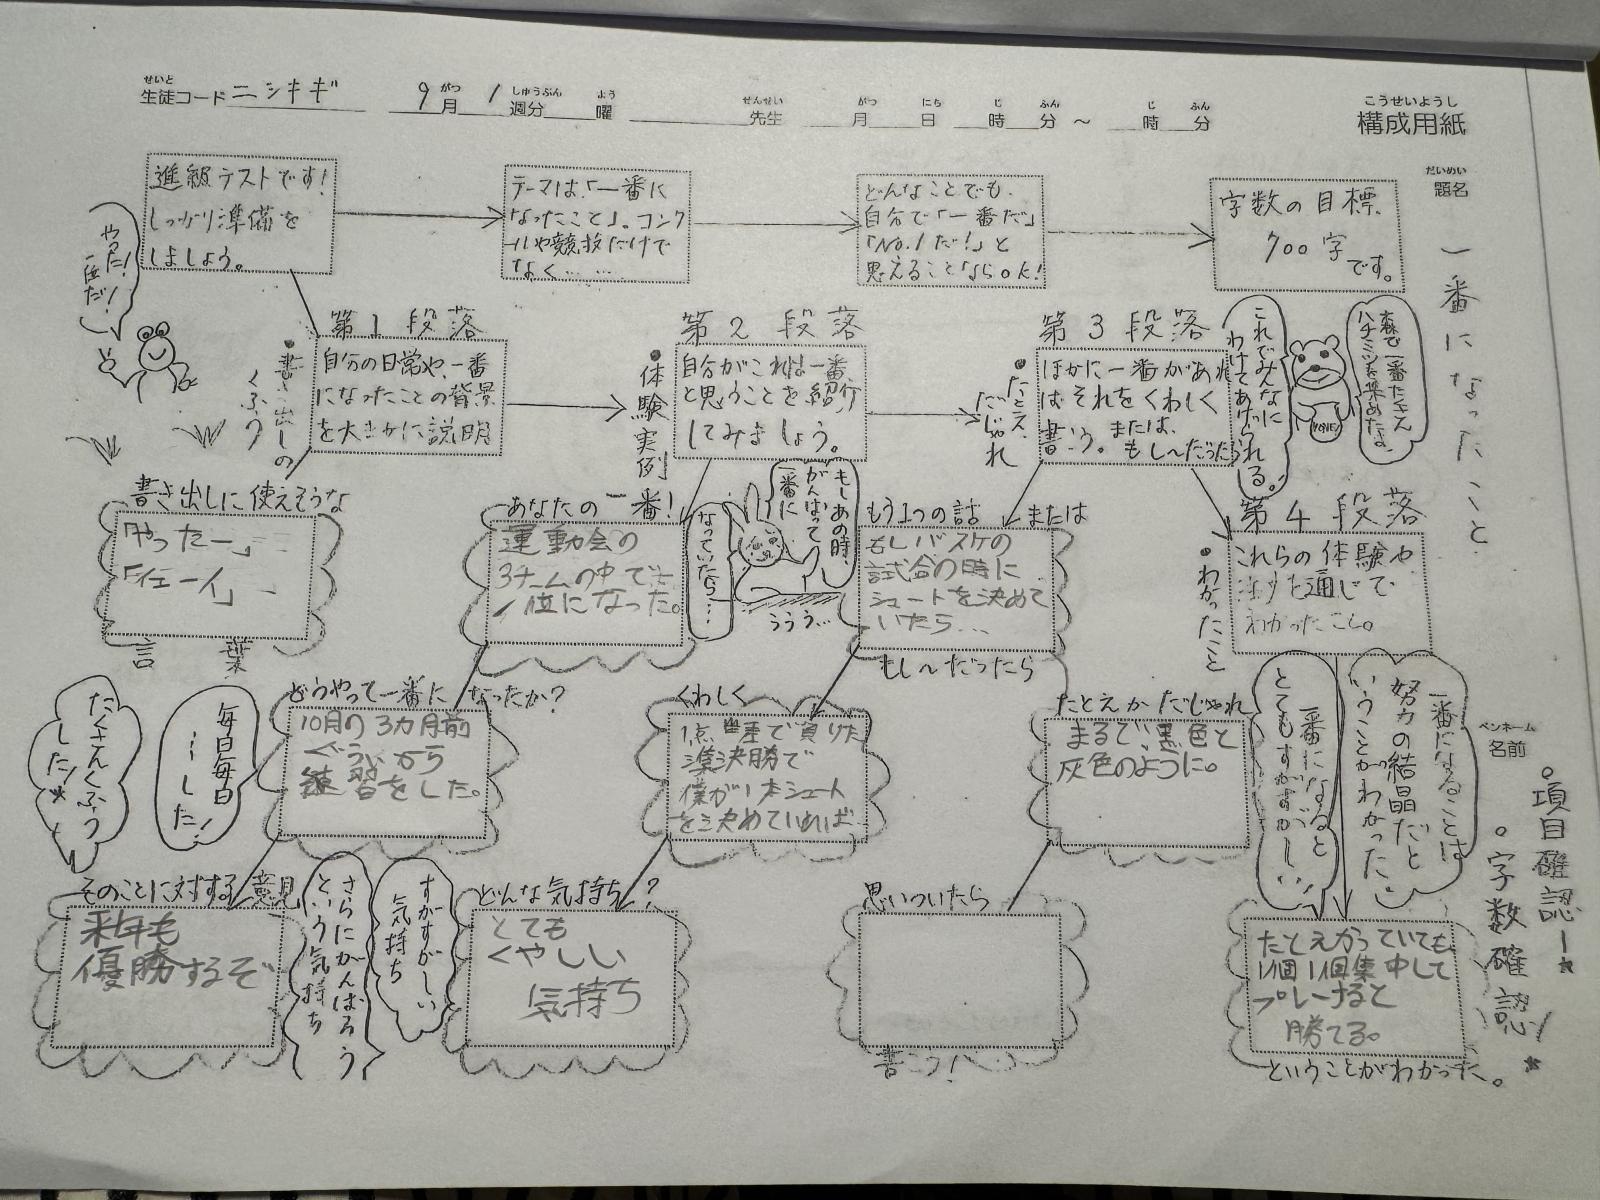 せいと
生徒コード ニシキギ
9月 1週分 曜
がつ しゅうぶん よう
せんせい がつ にち じ ふん じ ふん
先生 月 日 時 分 ～ 時 分
こうせいようし
構成用紙
だいめい
題名
一番になったこと
進級テストです!
しっかり準備を
しましょう。
テーマは、「一番に
なったこと」。コンク
ールや競技だけで
なく……
どんなことでも、
自分で「一番だ」
「No.1だ!」と
思えることならOK!
字数の目標
700字
です。
やった!
一位だ!
第1段落
自分の日常や、一番
になったことの背景
を大まかに説明
・書き出しの
くふう
第2段落
自分がこれは一番
と思うことを紹介
してみましょう。
・体験実例
第3段落
ほかに一番があれ
ばそれをくわしく
書こう。または、
もし〜だったら
・たとえ
だじゃれ
これでみんなに
わけてあげられる。
森で一番たくさん
ハチミツを集めたよ。
HONEY
書き出しに使えそうな
「やったー」
「イェーイ」
言葉
あなたの一番!
運動会の
3チームの中で
1位になった。
もしあの時、
がんばって
一番に
なっていたら…
ううう…
もう1つの話 または
もしバスケの
試合の時に
シュートを決めて
いたら…
もし〜だったら
第4段落
これらの体験や
通じて
わかったこと。
・わかったこと
たくさんくふう
した!
毎日毎日
…した!
どうやって一番になったか?
10月の3カ月前
ぐらいから
練習をした。
くわしく
1点差で負けた
準決勝で
僕が1本シュート
を決めていれば
たとえかだじゃれ
まるで、黒色と
灰色のように。
一番になると
とてもすがすがしい
一番になることは
努力の結晶だと
いうことがわかった
ペンネーム
名前
・項目確認ー★
・字数確認!★
そのことに対する意見
来年も
優勝するぞ
さらにがんばろう
という気持ち
すがすがしい
気持ち
どんな気持ち?
とても
くやしい
気持ち
思いついたら
書こう!
たとえかっていても
1個1個集中して
プレーすると
勝てる。
ということがわかった。